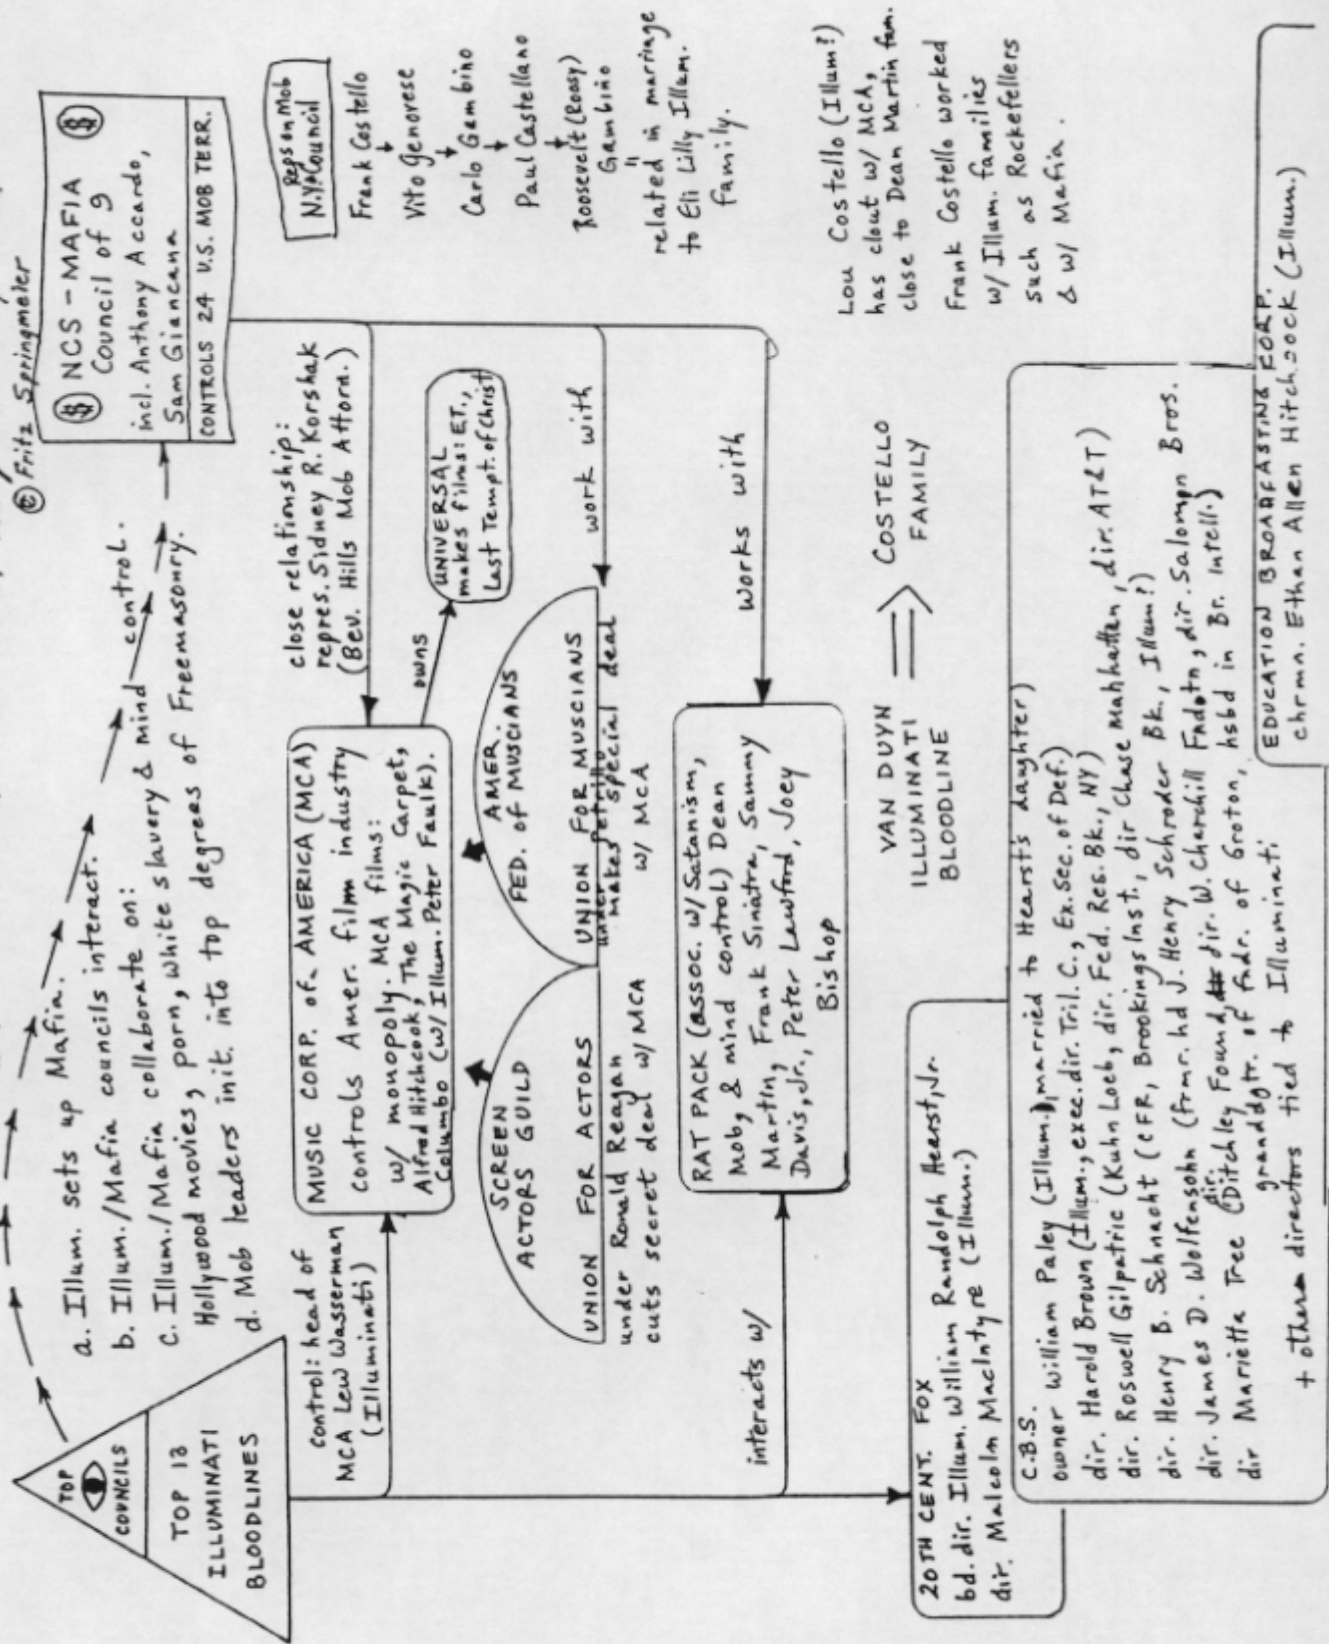 © Fritz Springmeier
TOP
COUNCILS
TOP 13
ILLUMINATI
BLOODLINES
a. Illum. sets up Mafia.
b. Illum./Mafia councils interact.
c. Illum./Mafia collaborate on:
Hollywood movies, porn, white slavery & mind control.
d. Mob leaders init. into top degrees of Freemasonry.
($) NCS - MAFIA ($)
Council of 9
incl. Anthony Accardo,
Sam Giancana
CONTROLS 24 U.S. MOB TERR.
Reps on Mob
N.Y. Council
Frank Costello
Vito Genovese
Carlo Gambino
Paul Castellano
Roosevelt (Rossy)
Gambino
"
related in marriage
to Eli Lilly Illum.
family.
control: head of
MCA Lew Wasserman
(Illuminati)
MUSIC CORP. of. AMERICA (MCA)
controls Amer. film industry
w/ monopoly. MCA films:
Alfred Hitchcook, The Magic Carpet,
Columbo (w/ Illum. Peter Faulk).
close relationship:
repres. Sidney R. Korshak
(Bev. Hills Mob Attorn.)
owns
UNIVERSAL
makes films: ET.,
Last Tempt. of Christ
SCREEN
ACTORS GUILD
UNION FOR ACTORS
under Ronald Reagan
cuts secret deal w/ MCA
AMER.
FED. of MUSCIANS
UNION FOR MUSCIANS
under Petrillo
makes special deal
w/ MCA
work with
interacts w/
RAT PACK (assoc. w/ Satanism,
Mob, & mind control) Dean
Martin, Frank Sinatra, Sammy
Davis, Jr., Peter Lawford, Joey
Bishop
works with
Lou Costello (Illum?)
has clout w/ MCA,
close to Dean Martin fam.
Frank Costello worked
w/ Illum. families
such as Rockefellers
& w/ Mafia.
VAN DUYN
ILLUMINATI
BLOODLINE
COSTELLO
FAMILY
20TH CENT. FOX
bd. dir. Illum. William Randolph Hearst, Jr.
dir. Malcolm MacIntyre (Illum.)
C.B.S.
owner William Paley (Illum.), married to Hearsts daughter)
dir. Harold Brown (Illum., exec. dir. Tril. C., Ex. Sec. of Def.)
dir. Roswell Gilpatric (Kuhn Loeb, dir. Fed. Res. Bk., NY)
dir. Henry B. Schnacht (CFR, Brookings Inst., dir Chase Manhattan, dir. AT&T)
dir. James D. Wolfensohn (frmr. hd J. Henry Schroder Bk., Illum?)
dir Marietta Tree (Ditchley Found. dir. dir. W. Charchill Fndotn, dir. Salompn Bros.
granddgtr. of fndr. of Groton, hsbd in Br. Intell.)
+ other directors tied to Illuminati
EDUCATION BROADFASTING CORP.
chrmn. Ethan Allen Hitchcock (Illum.)